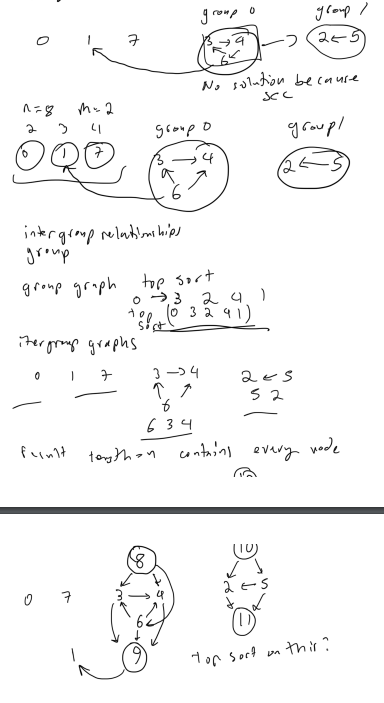 group 0 group 1
0 1 7 3 → 4 2 ← 5
6
No solution because
scc
n=8 m=2
2 3 4 group 0 group 1
0 1 7 3 → 4 2 ← 5
6
intergroup relationships
group
group graph top sort
0 → 3 2 4 1
top sort (0 3 2 4 1)
itergroup graphs
0 1 7 3 → 4 2 ← 5
6 5 2
6 3 4
result length = n contains every node
10
8 10
0 7 3 → 4 2 ← 5
6 11
1 9 top sort on this?